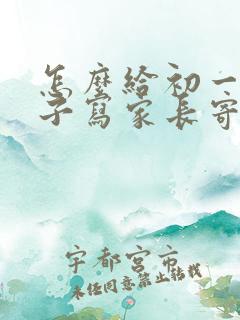 怎麼給初一
子寫家長寄
宇都宮市
未经同意禁止转载